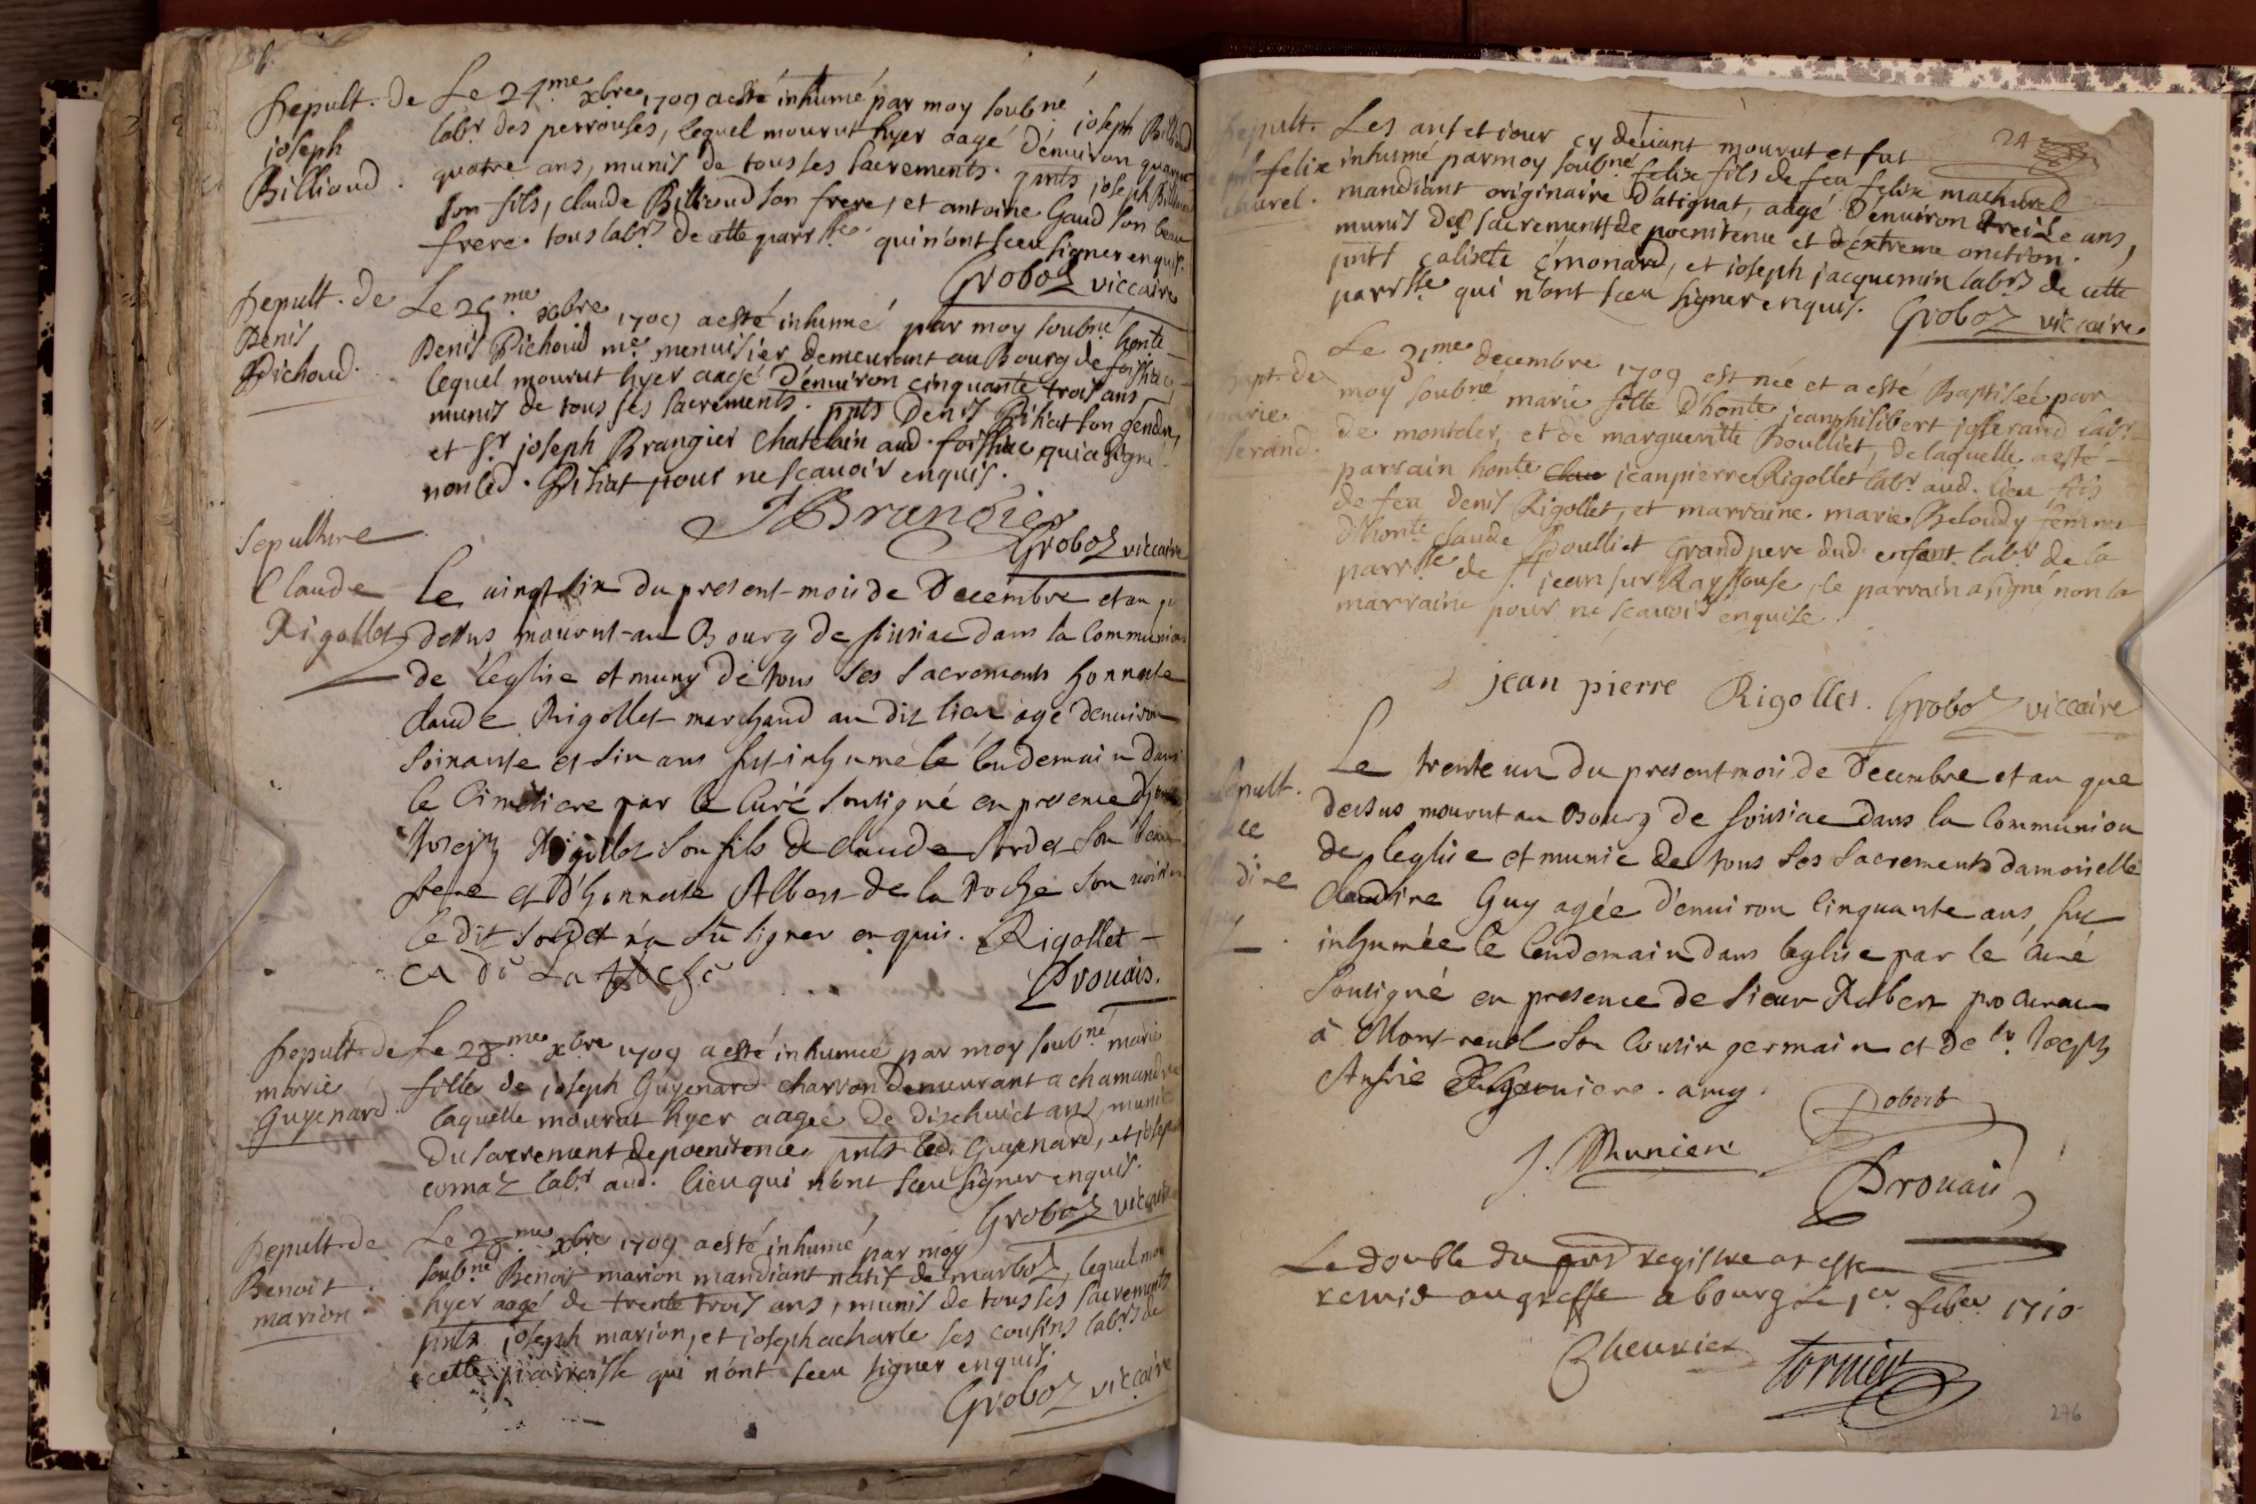 Sepult. de
joseph
Billioud.
Le 24.me xbre 1709 a esté inhumé par moy soubné joseph Billioud
labr des perrouses, lequel mourut hyer aagé d'enuiron quarante
quatre ans, munis de tous ses sacrements. pnts joseph Billioud
son fils, claude Billioud son frere, et antoine Gaud son beau
frere tous labrs de cette parrsse qui n'ont sceu signer enquis.
Groboz viccaire
Sepult. de
Denis
Pichoud.
Le 25.me xbre 1709 a esté inhumé par moy soubné honte
Denis Pichoud me menuisier demeurant au Bourg de
lequel mourut hyer aagé d'enuiron cinquante trois ans
munis de tous ses sacrements. pnts Denis Pitiat son gendre,
et Sr joseph Brangier Chatelain aud. foissiac qui a signé
non led. Pitiat pour ne scauoir enquis.
JBrangier
Groboz viccaire
Sepulture
Claude
Rigollet
Le uingt six du present mois de Decembre et an que
dessus mourut au Bourg de foissiac dans la Communion
de l'eglise et muny de tous ses sacrements honneste
claude Rigollet marchand au dit lieu agé denuiron
soixante et six ans fut inhumé le lendemain dans
le Cimetiere par le Curé soussigné en presence
Joseph Rigollet son fils de claude Sordet son beau
frere et d'honneste Albert de la Roche son voisin
le dit Sordet n'a sū signer enquis. Rigollet
CA De La Roche
Drouais.
Sepult. de
marie
Guyenard
Le 28.me xbre 1709 a esté inhumée par moy soubné marie
fille de joseph Guyenard charron demeurant a chamandre
laquelle mourut hyer aagée de dixhuict ans, munie
du sacrement de poenitence pnts led. Guyenard, et joseph
comaz labr aud. lieu qui n'ont sceu signer enquis.
Groboz viccaire
Sepult. de
Benoit
marion
Le 28.me xbre 1709 a esté inhumé par moy
soubné Benoit marion mandiant natif de marboz, lequel mourut
hyer aagé de trente trois ans, munis de tous ses sacrements
pnts joseph marion, et joseph acharle ses cousins labrs de
cette parroisse qui n'ont sceu signer enquis.
Groboz viccaire
24
Sepult.
felix
Les an et iour cy deuant mourut et fut
inhumé par moy soubné felix fils de feu felix machurel
mandiant originaire d'atignat, aagé d'enuiron treize ans,
munis des sacrements de poenitence et d'extreme onction.
pnts calixte émonard, et joseph jacquemin labrs de cette
parrsse qui n'ont sceu signer enquis. Groboz viccaire
Bapt. de
marie
Le 31me decembre 1709 est née et a esté Baptisée par
moy soubné marie fille d'honte jeanphilibert josserand labr
de montcler, et de margueritte Boulliet, de laquelle a esté
parrain honte jeanpierre Rigollet labr aud. lieu fils
de feu denis Rigollet, et marraine marie Beloudy femme
d'honte claude Boulliet Grand pere dud. enfant labr de la
parrsse de S. jean sur Rayssouse, le parrain a signé, non la
marraine pour ne scauoir enquise
jean pierre Rigollet. Groboz viccaire
Sepult.
Guy
Le trente un du present mois de Decembre et an que
dessus mourut au Bourg de foissiac dans la Communion
de l'eglise et munie de tous ses sacrements damoiselle
Claudine Guy agée d'enuiron cinquante ans, fut
inhumée le lendemain dans leglise par le Curé
soussigné en presence de sieur Robert procureur
à Montreuel son cousin germain et de Sr Joseph
amy.
Robert
J. Muniere
Drouais
Le double du pnt registre at esté
remis au greffe a bourg le 1er feber 1710
Cheurier
Tornier
276